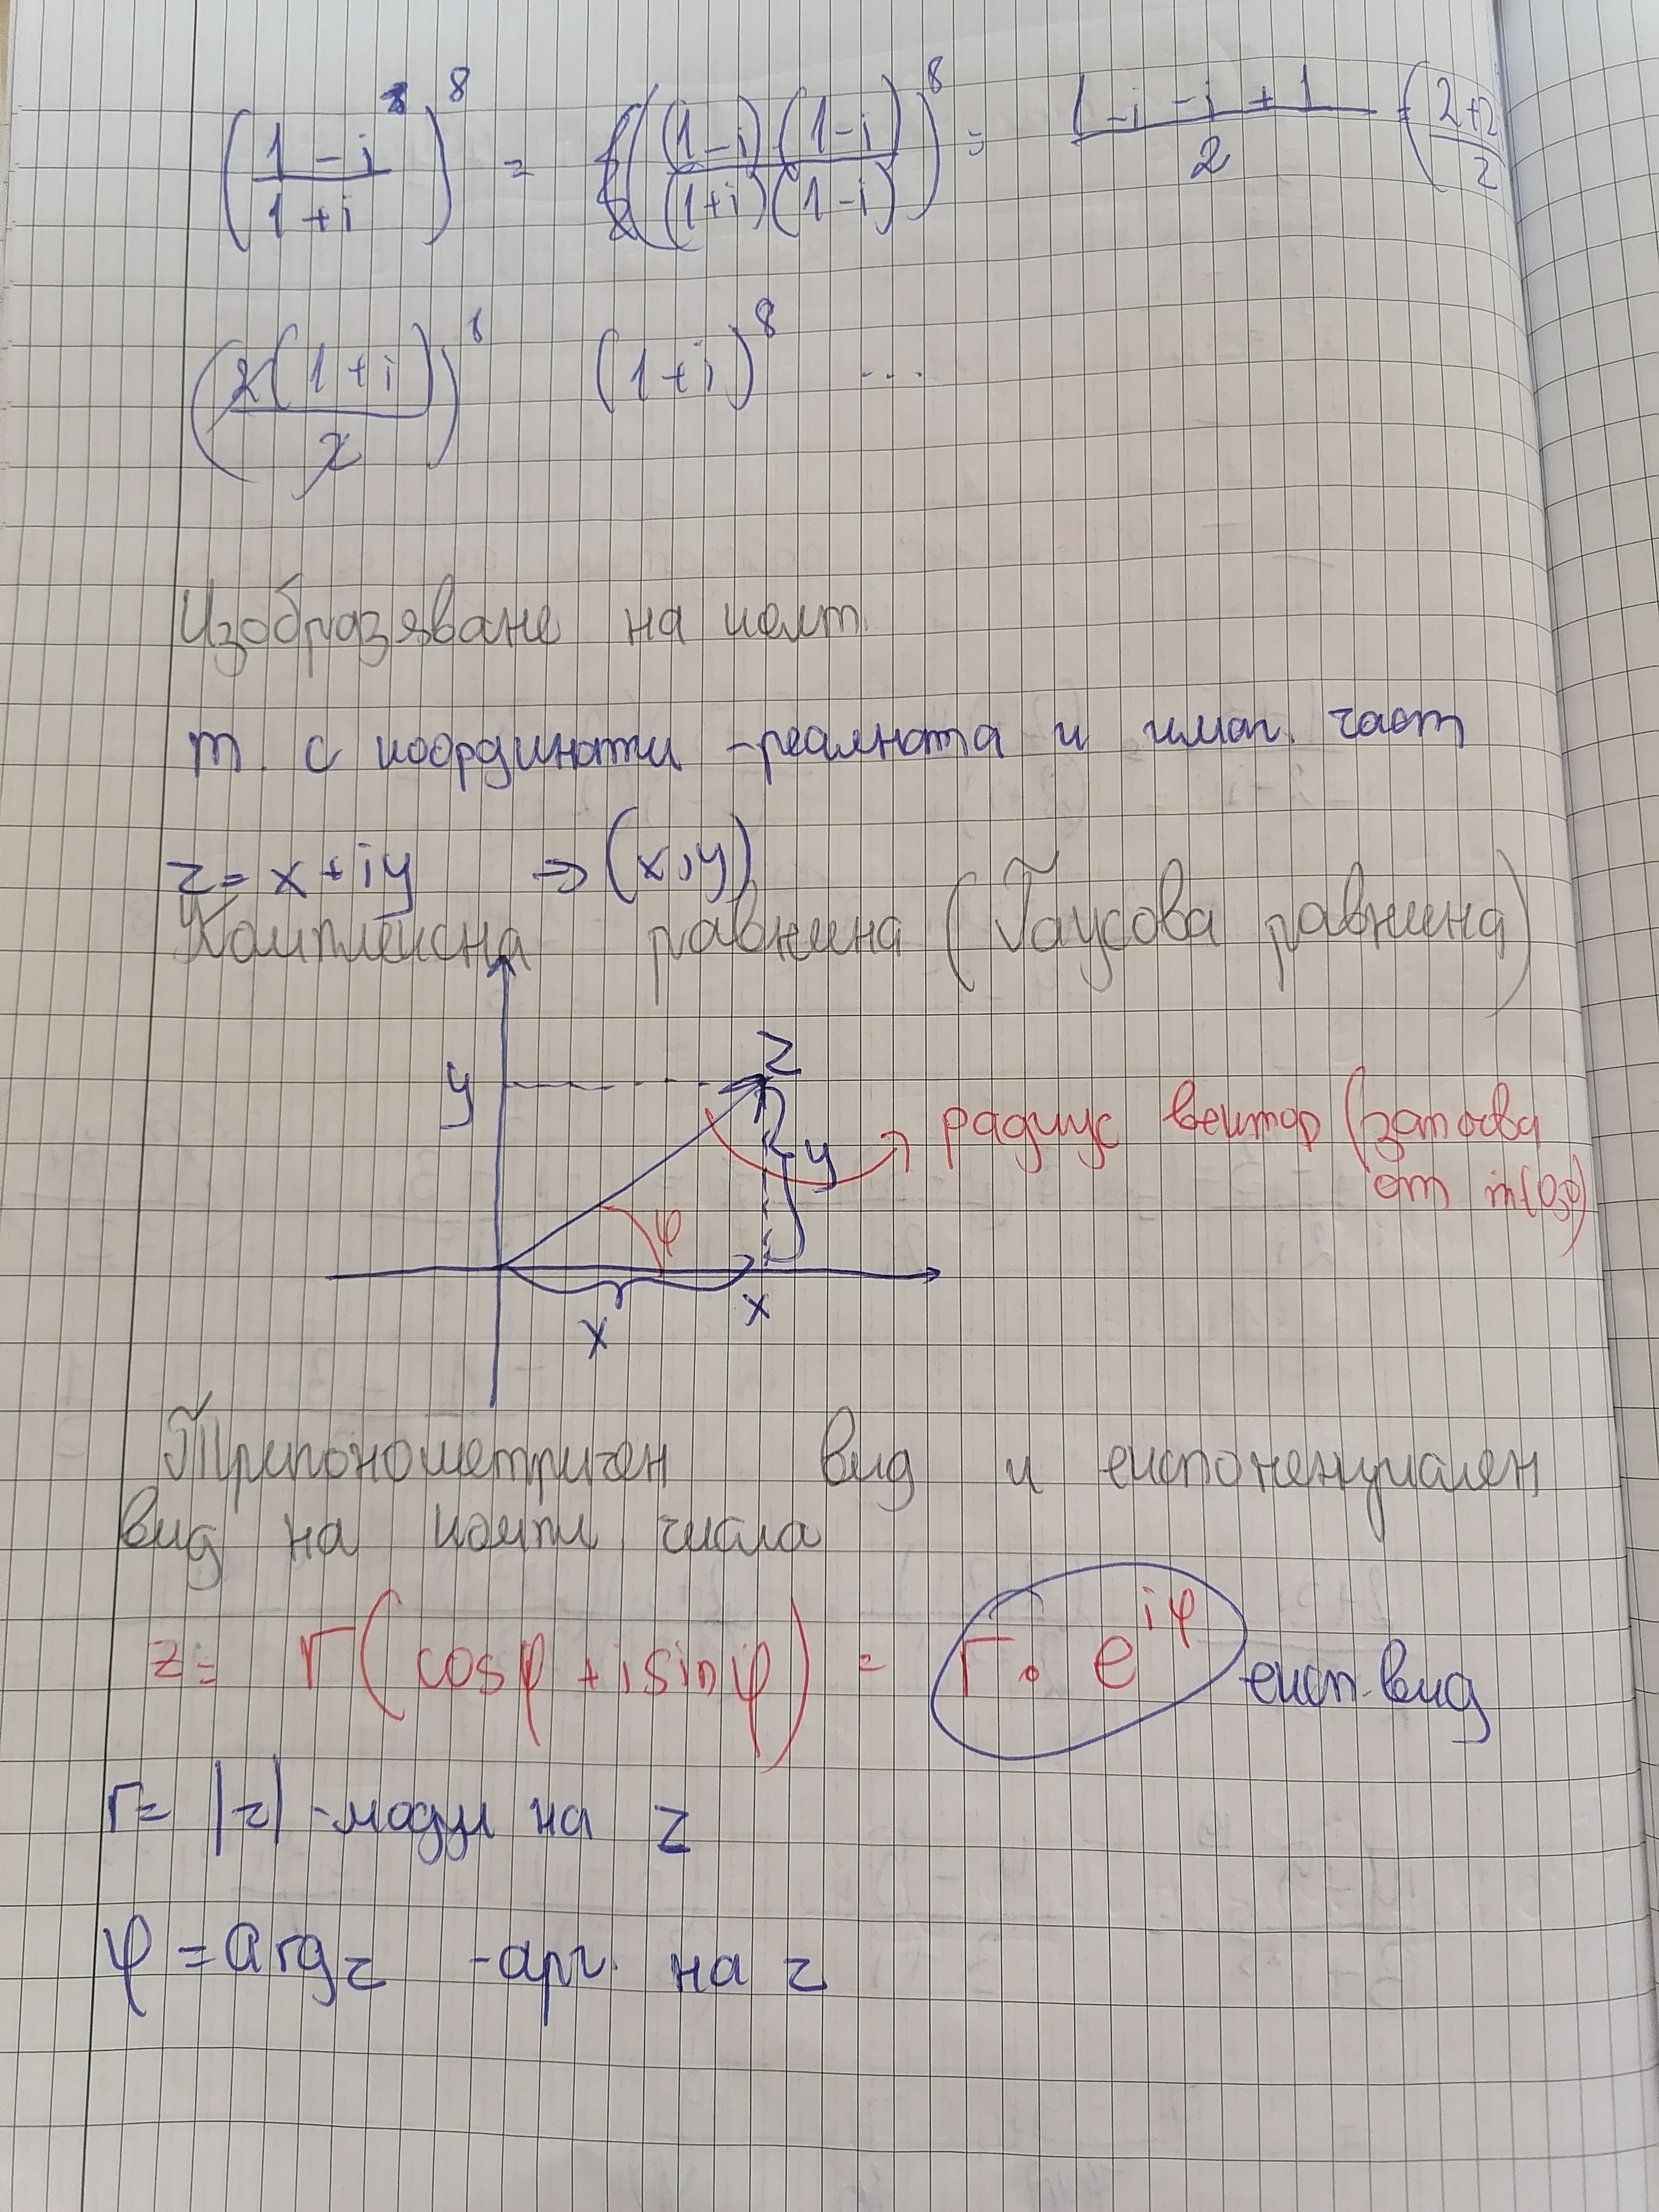 (1-i/1+i)^8 = ((1-i)(1-i)/(1+i)(1-i))^8 = 1-i-i+1/2 = (2+2/2
(2(1+i)/2)^8 (1+i)^8 ...
Изобразяване на
т. с координати -реалната и имаг. част
z = x+iy → (x,y)
Комплексна равнина (Гаусова равнина)
z
y
y
радиус вектор (започва
от т(0;0)
φ
x
x
Тригонометричен вид и експоненциален
вид на компл числа
z = r(cosφ + i sinφ) = r. e^iφ експ. вид
r = |z| -модул на z
φ = arg z -арг. на z